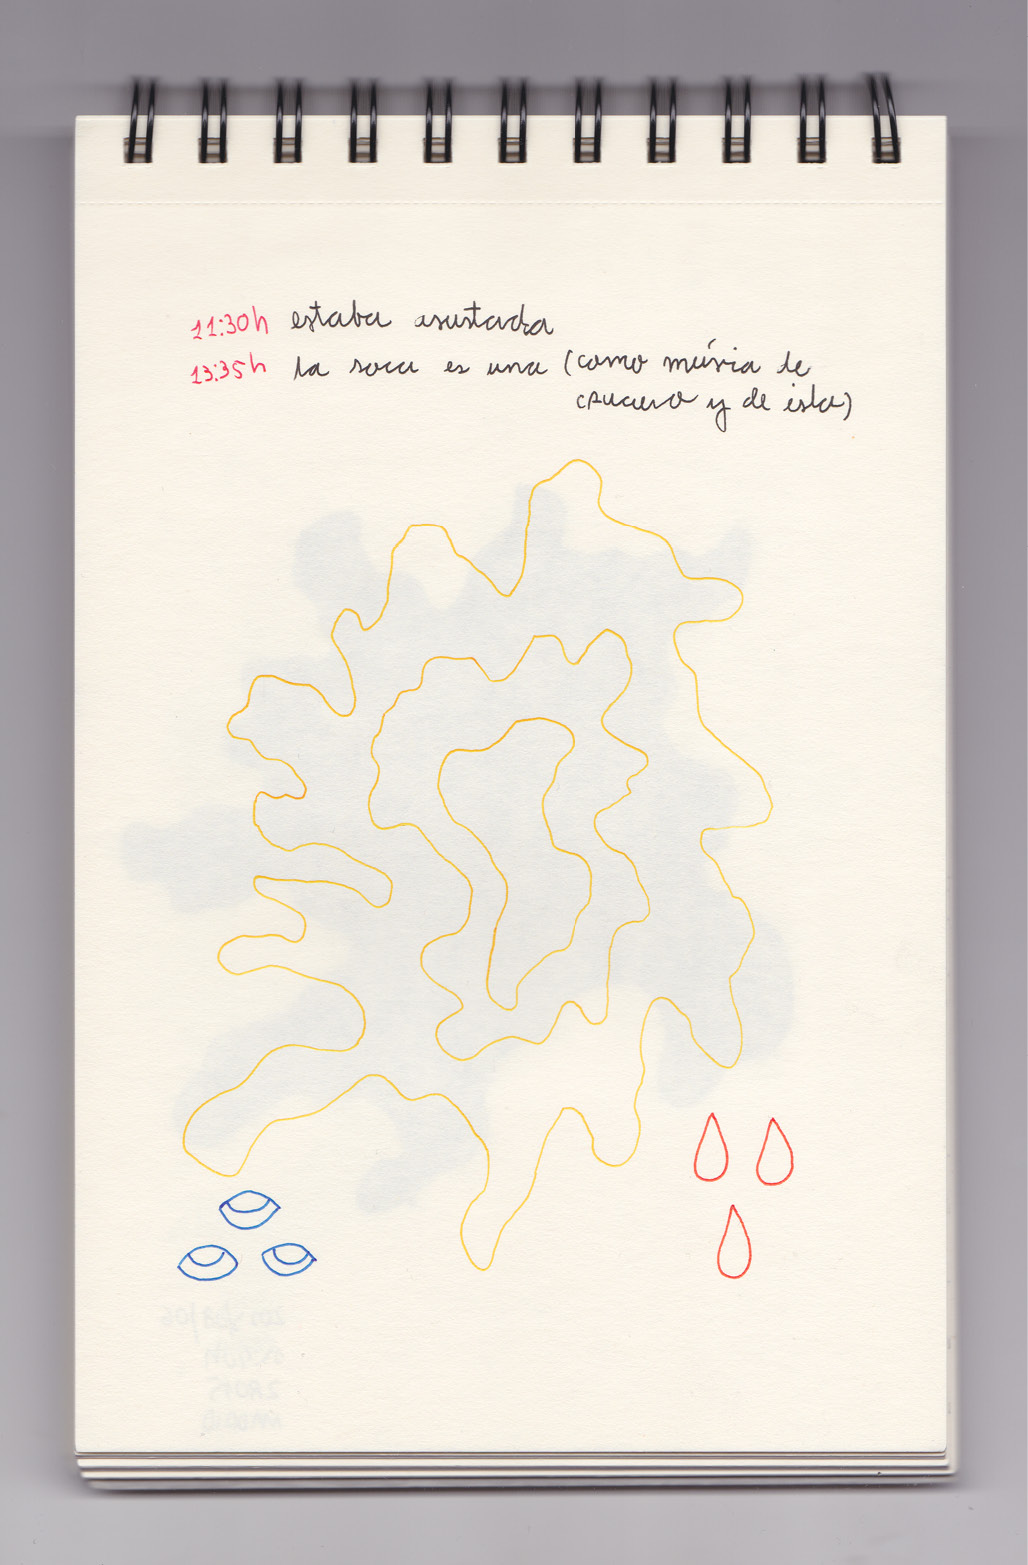 11:30h estaba asustada
13:35h la roca es una (como música de
crucero y de isla)